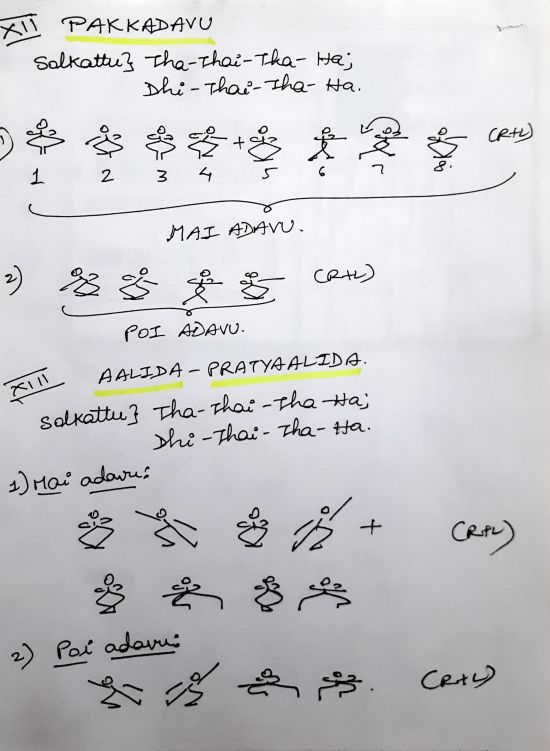 XII PAKKADAVU
Solkattu} Tha-Thai-Tha-Ha;
Dhi-Thai-Tha-Ha.
1) + (R+L)
1 2 3 4 5 6 7 8.
MAI ADAVU.
2) (R+L)
POI ADAVU.
XIII AALIDA - PRATYAALIDA.
Solkattu} Tha-Thai-Tha-Ha;
Dhi-Thai-Tha-Ha.
1) Mai adavu:
+ (R+L)
2) Poi adavu:
(R+L)